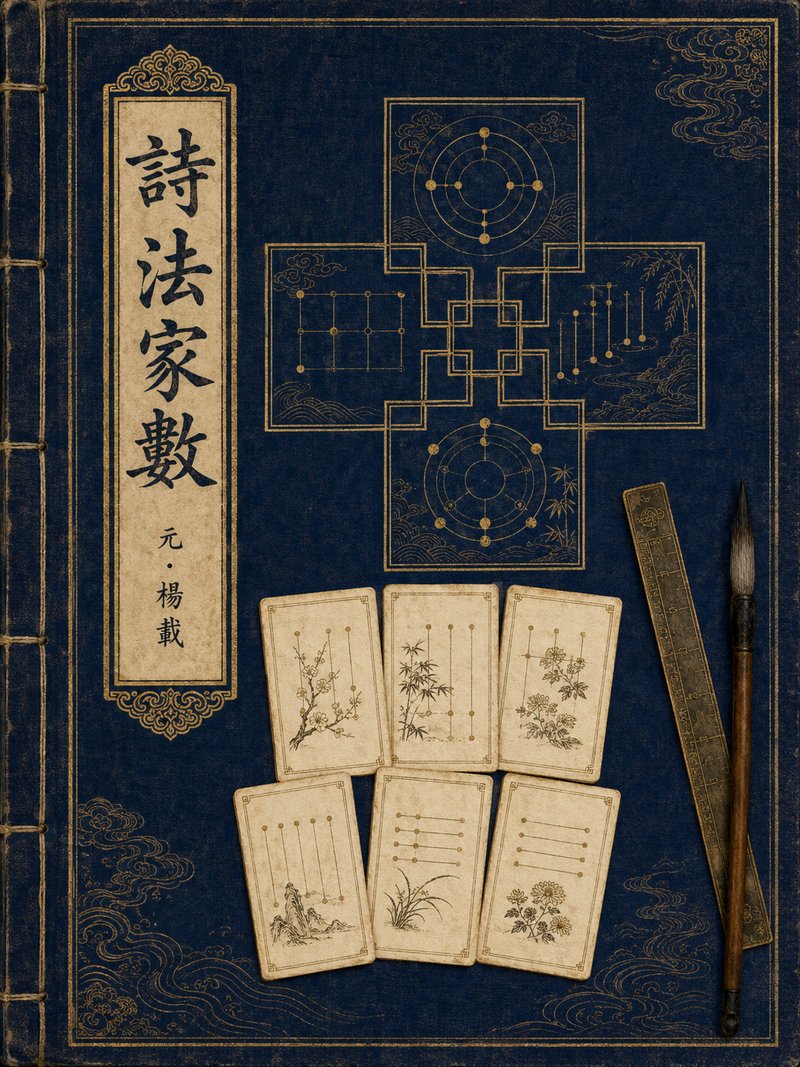 詩法家數
元·楊載